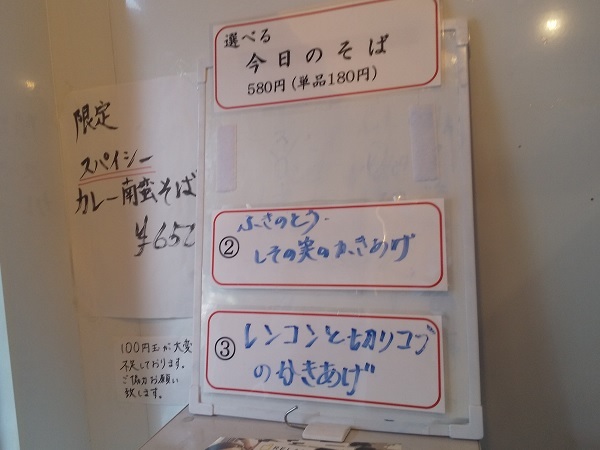 選べる
今日のそば
580円(単品180円)
②
ふきのとう・
しその実のかきあげ
③
レンコンと切りコブ
のかきあげ
限定
スパイシー
カレー南蛮そば
¥650
100円玉が大変
不足しております。
ご協力お願い
致します。